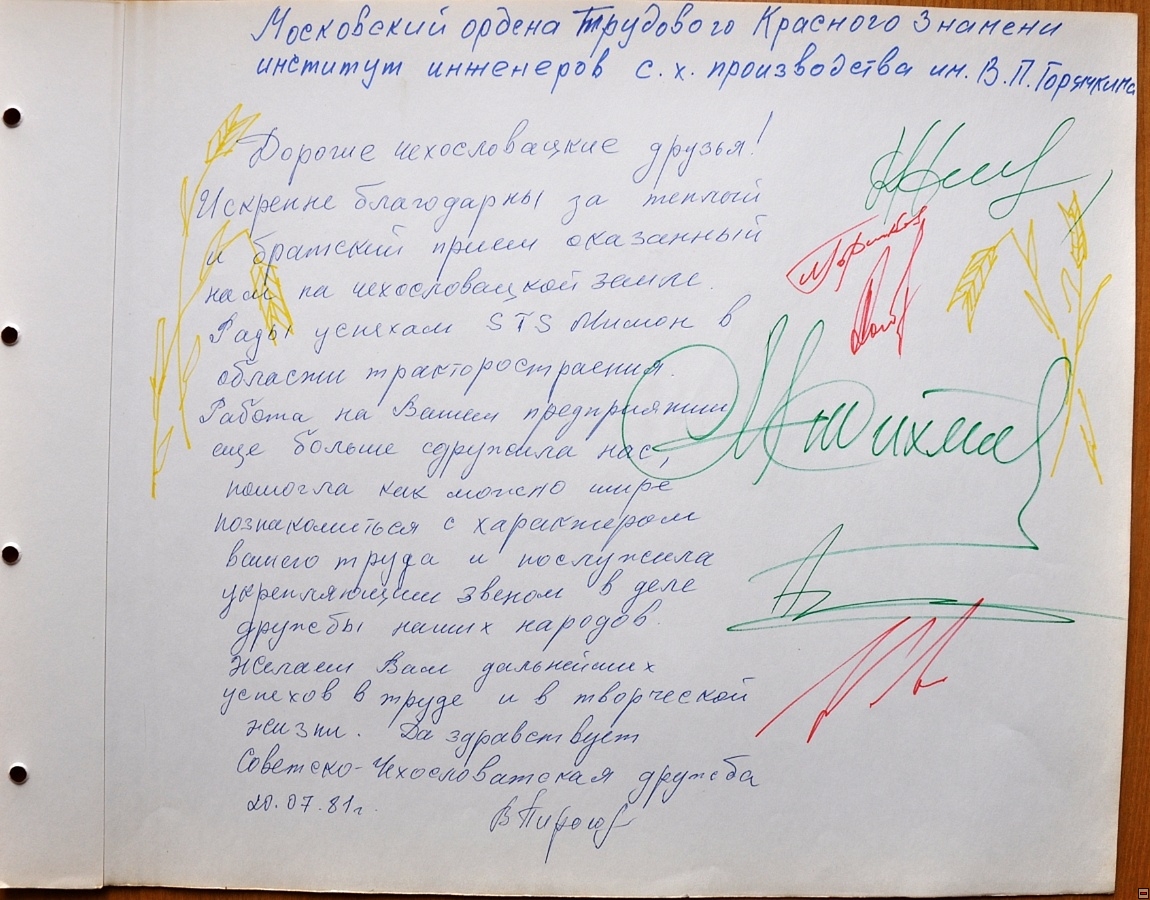 Московский ордена Трудового Красного Знамени
институт инженеров с.х. производства им. В.П. Горячкина
Дорогие чехословацкие друзья!
Искренне благодарны за теплый
и братский прием оказанный
нам на чехословацкой земле.
Рады успехам STS Мимон в
области тракторостраения.
Работа на Вашем предприятии
еще больше сдружила нас,
помогла как можно шире
познакомиться с характером
вашего труда и послужила
укрепляющим звеном в деле
дружбы наших народов.
Желаем Вам дальнейших
успехов в труде и в творческой
жизни. Да здравствует
Советско-Чехословатская дружба
20.07.81г.